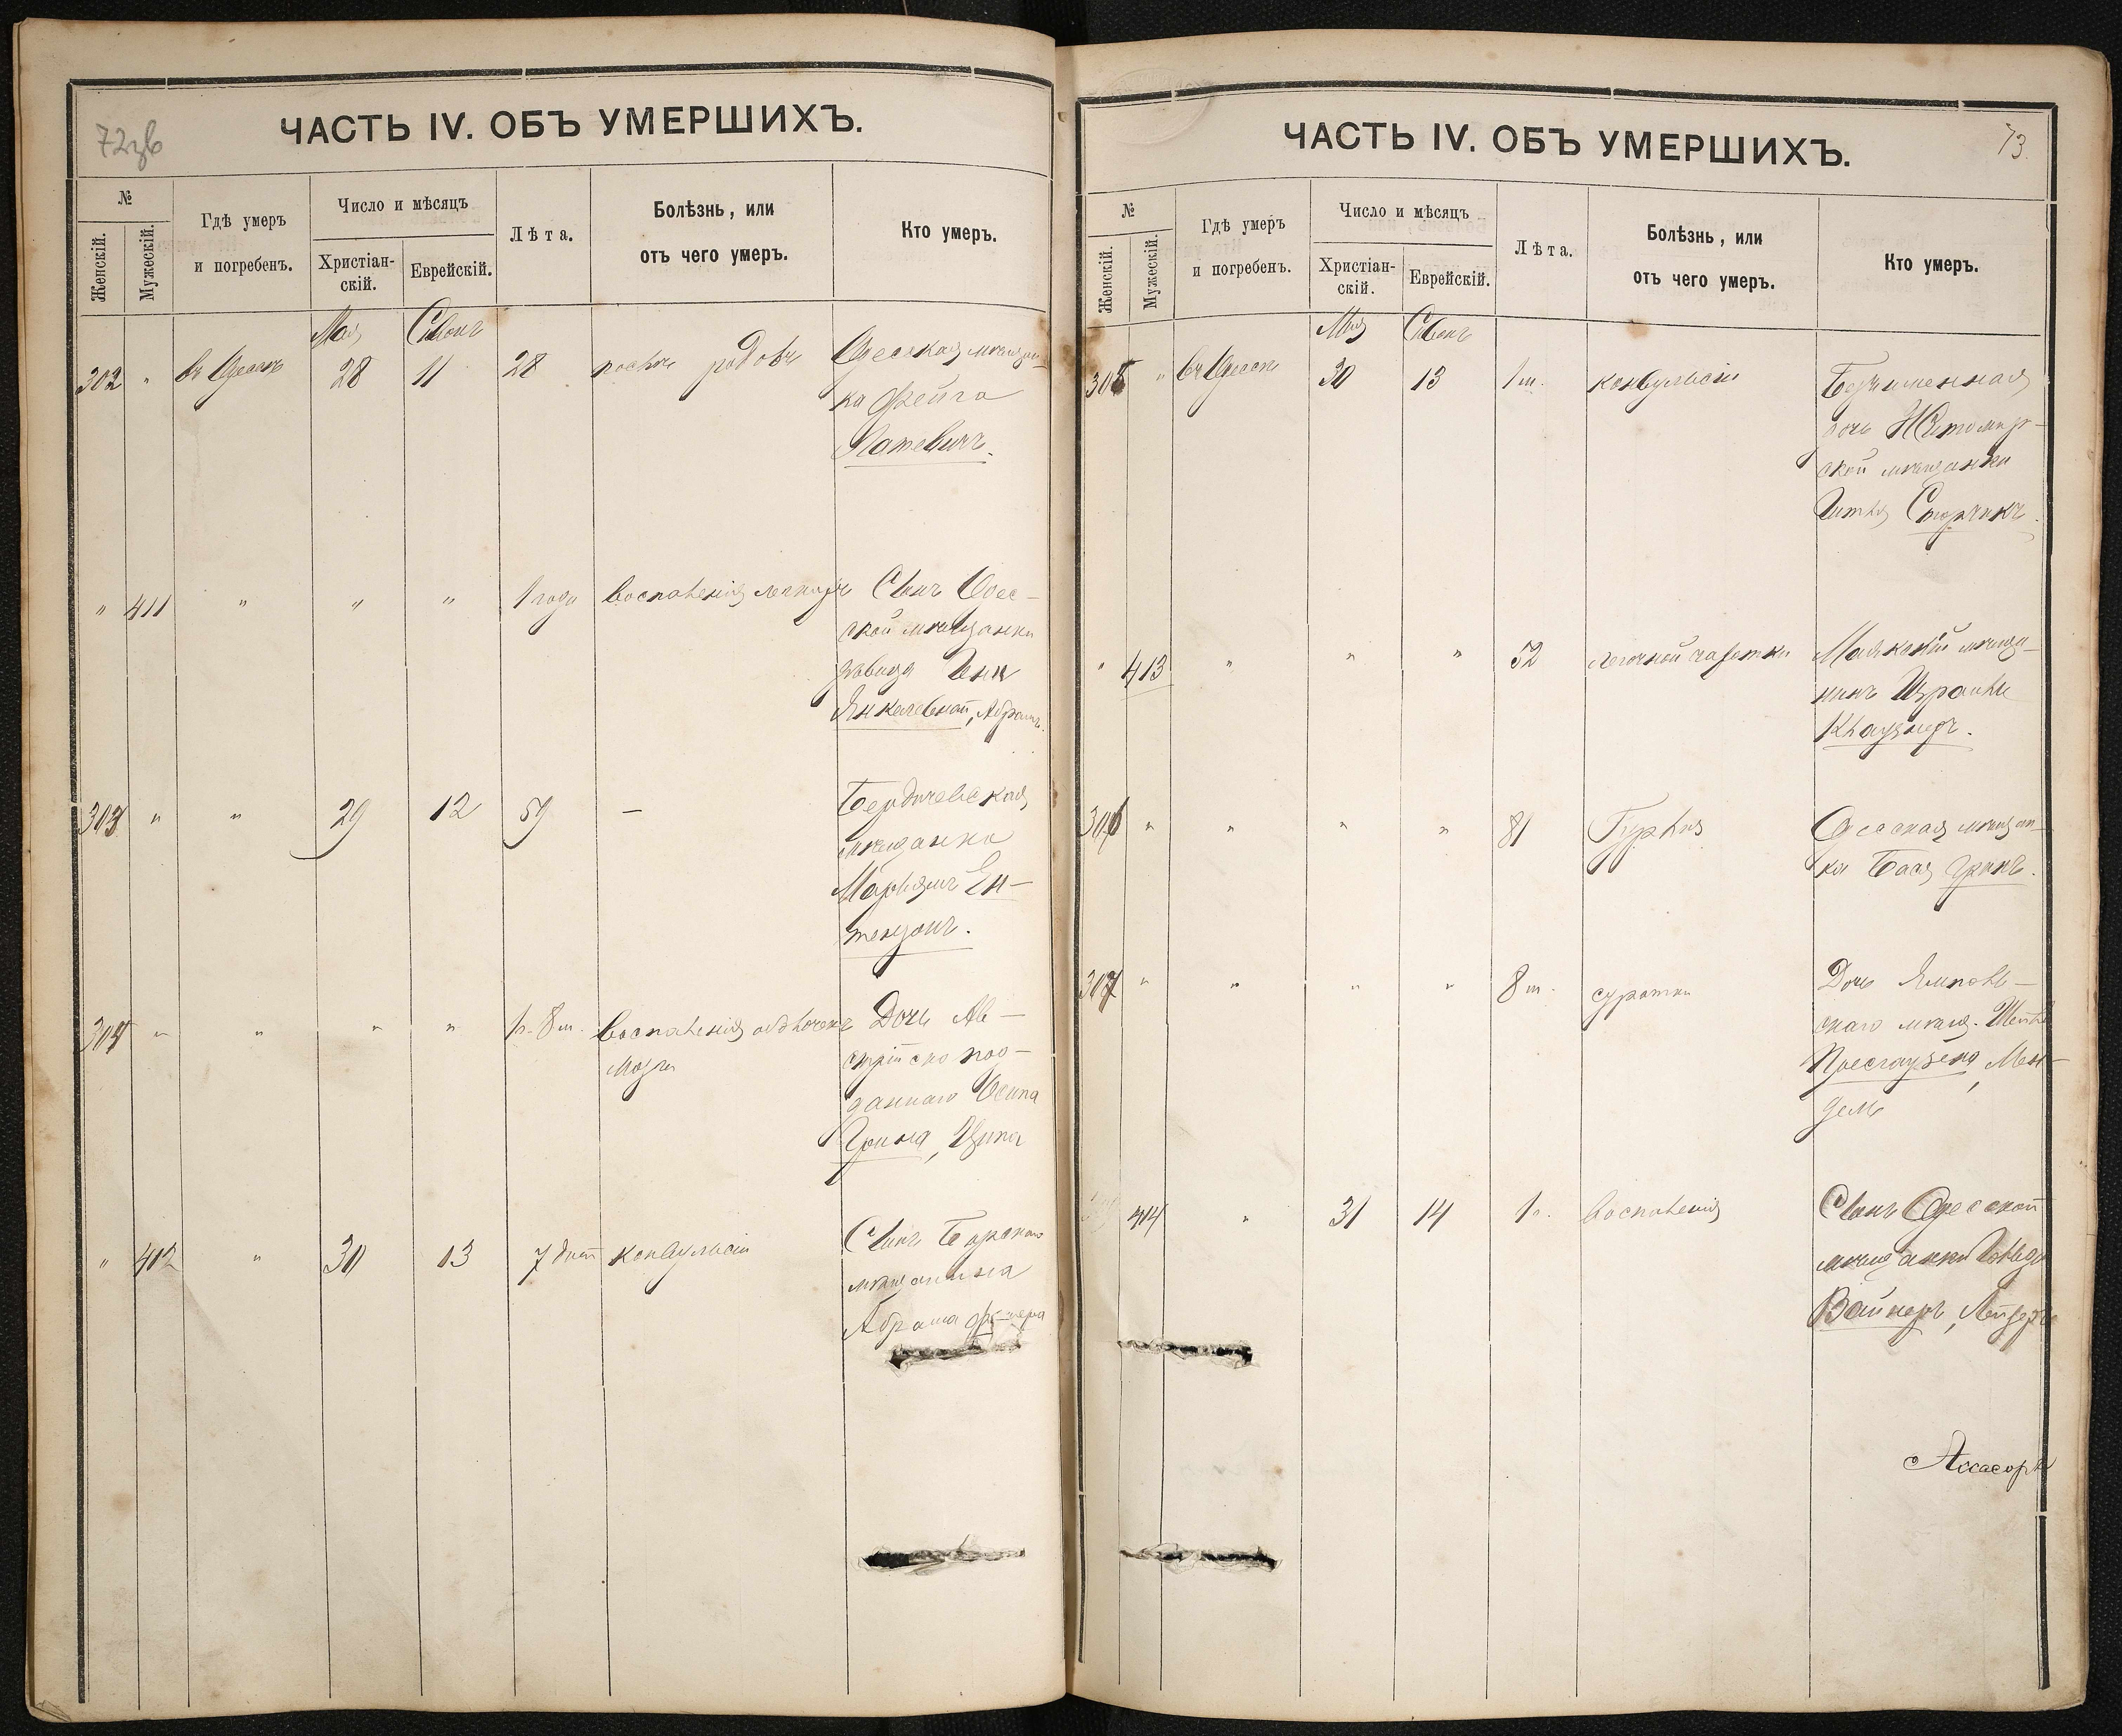 72об
ЧАСТЬ IV. ОБЪ УМЕРШИХЪ.
№
Женскій.
Мужескій.
Гдѣ умеръ
и погребенъ.
Число и мѣсяцъ
Христіан-
скій.
Еврейскій.
Лѣта.
Болѣзнь, или
отъ чего умеръ.
Кто умеръ.
Мая Сивонъ
302 " въ Одессѣ 28 11 28 послѣ родовъ Одесская мѣщан-
ка Фейга
" 411 " " " 1 года воспаленія легкихъ Сынъ Одес-
ской мѣщанки
Янкелевной, Абрамъ.
303 " " 29 12 59 — Бердичевская
мѣщанка
Марьямъ Ен-
304 " " " " 1 г. 8 м. воспаленія оболочекъ Дочь Ав-
мозга
стрійско под-
даннаго Осипа
Грина, Ципа
" 412 " 30 13 7 дней конвульсіи Сынъ
мѣщанина
Абрама
73.
ЧАСТЬ IV. ОБЪ УМЕРШИХЪ.
№
Женскій.
Мужескій.
Гдѣ умеръ
и погребенъ.
Число и мѣсяцъ
Христіан-
скій.
Еврейскій.
Лѣта.
Болѣзнь, или
отъ чего умеръ.
Кто умеръ.
Мая Сивонъ
305 " въ Одессѣ 30 13 1 м. конвульсіи Безъименная
дочь Житомир-
ской мѣщанки
" 413 " " " 52 легочной чахотки Маякскій мѣща-
нинъ Израиль
Клаузнеръ.
306 " " " " 81 Одесская мѣщан-
ка Бася Гринъ.
307 " " " " 8 м. сухотки Дочь Ямполь-
скаго мѣщ.
Мен-
дель
414 " 31 14 1 г. воспаленія Сынъ Одесской
мѣщанки
Вайнеръ, Лейзеръ
Ассесоръ